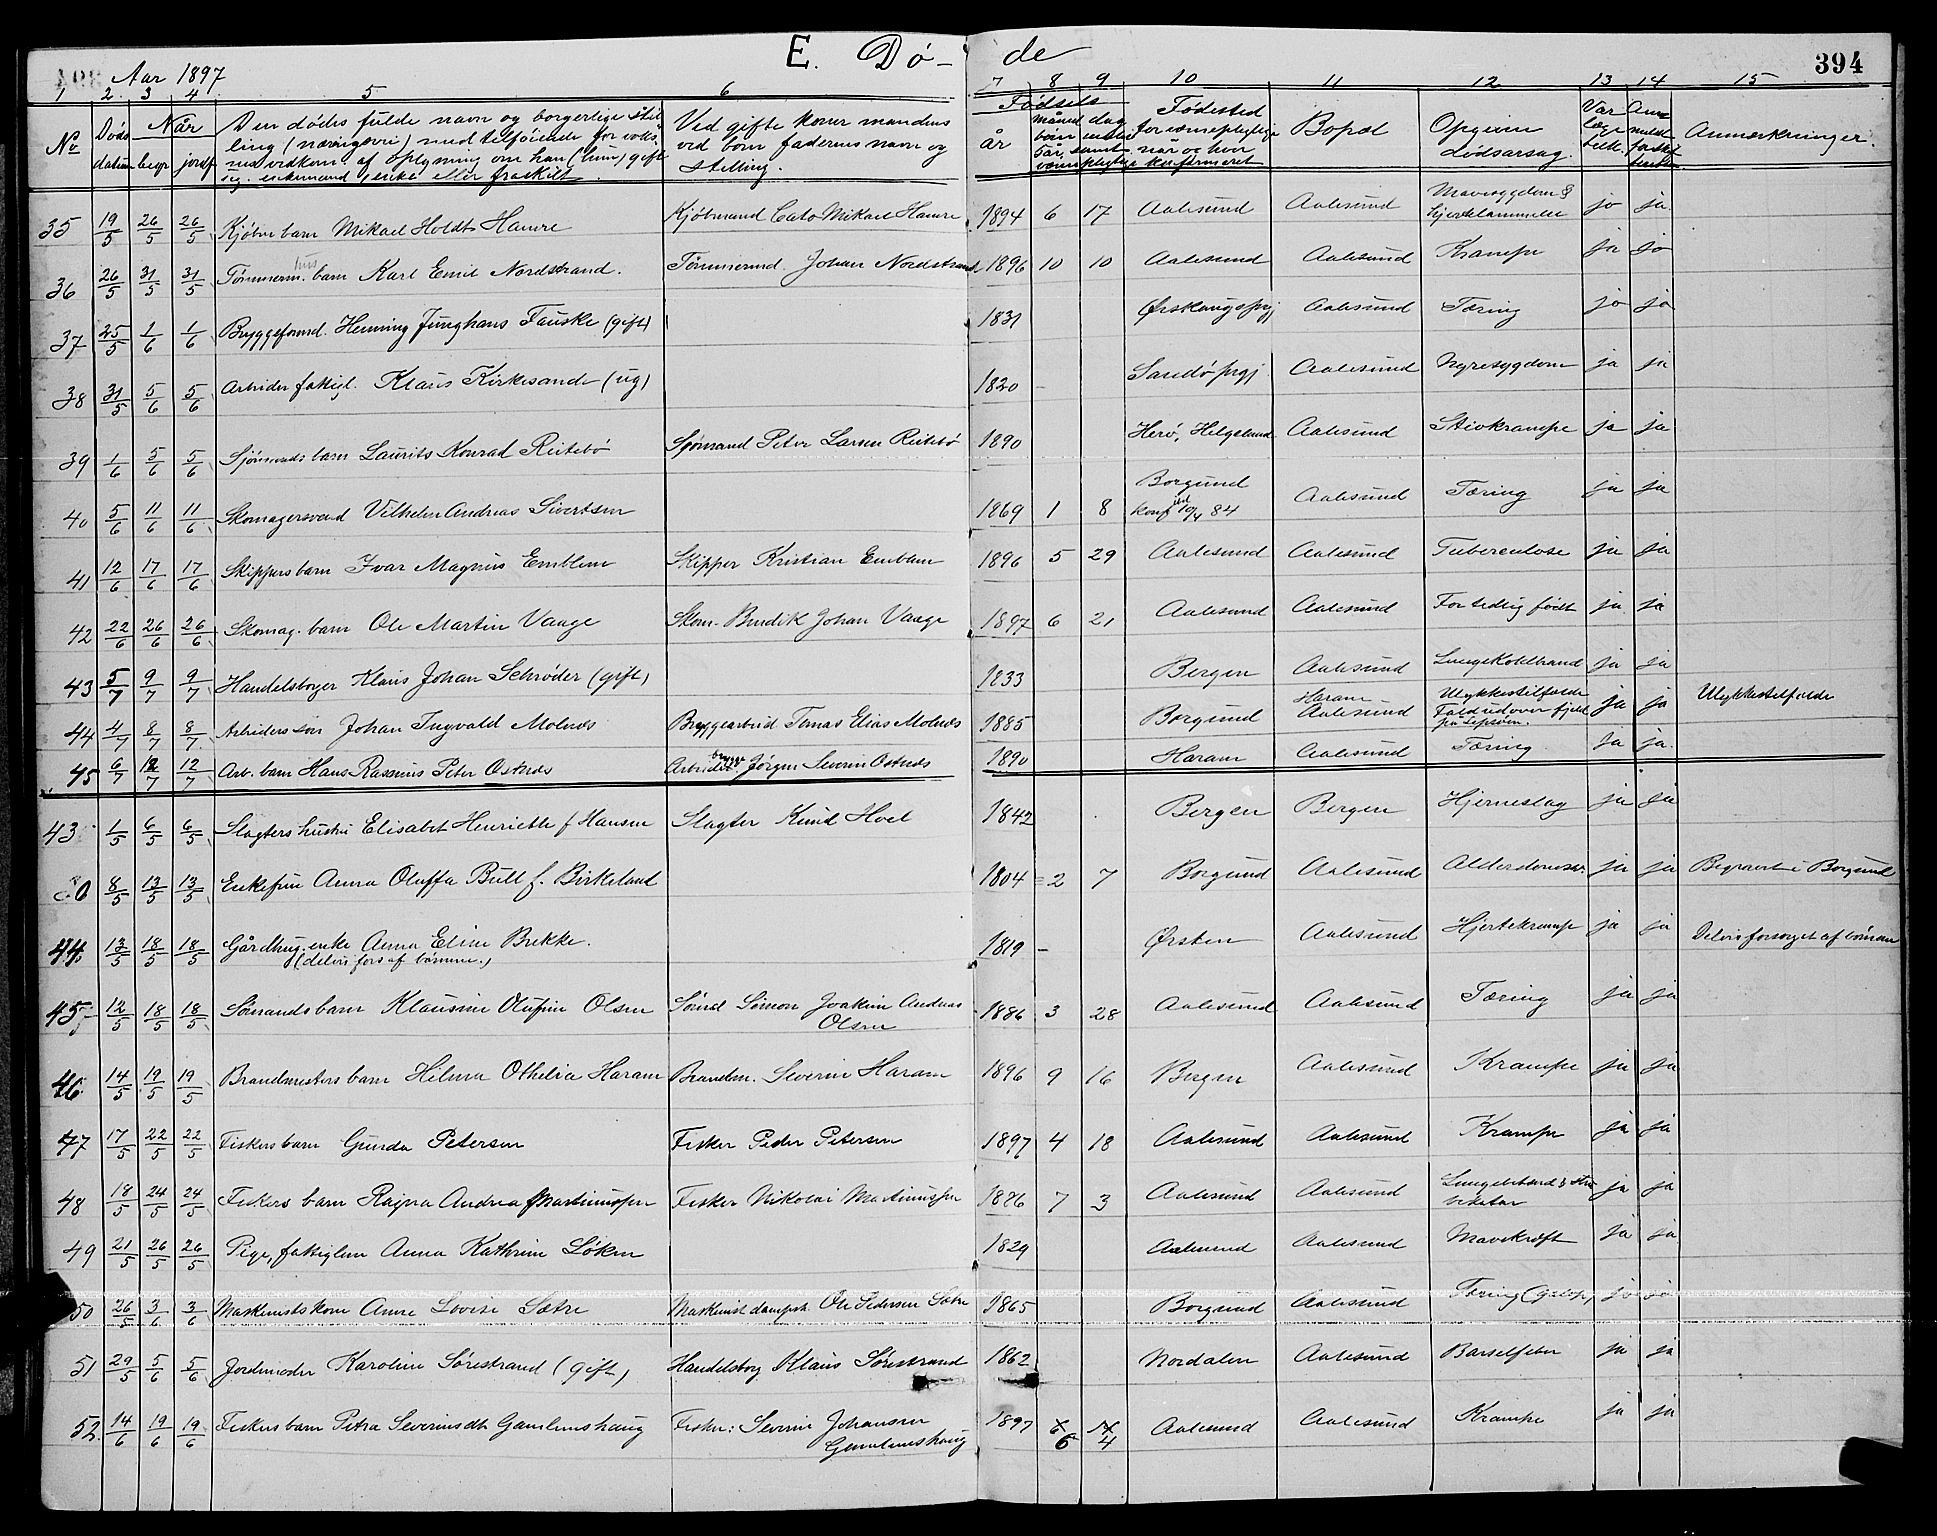 E. Dø- de
394
Aar 1897
1 2 3 4 5 6 7 8 9 10 11 12 13 14 15
No Døds datum Når begr. jordf. Den dødes fulde navn og borgerlige stilling (næringsvei) med tilföiende for voksne vedkom. af oplysning om han (hun) gift ug. enkemand, enke eller fraskilt. Ved gifte koner mandens ved børn faderens navn og stilling. Fødsels år måned dag Fødested for værnepligtige når og hvor konfirmeret Bopæl Opgiven Dødsårsag. Var læge Anmærkninger.
35 19/5 26/5 26/5 Kjøbm barn Mikael Holdt Hamre Kjøbmand Cato Mikael Hamre 1894 6 17 Aalesund Aalesund Mavesygdom & hjertelammelse ja ja
36 26/5 31/5 31/5 Tømmerm. barn Karl Emil Nordstrand. Tömmermd. Johan Nordstrand 1896 10 10 Aalesund Aalesund Krampe ja ja
37 25/5 1/6 1/6 Bryggeformd. Henning Junghans Fauske (gift) 1831 Ørskougs prgj Aalesund Tæring ja ja
38 31/5 5/6 5/6 Arbeider fattigl. Klaus Kirkesande (ug) 1820 - Sandö prgj Aalesund Nyresygdom ja ja
39 1/6 5/6 5/6 Sjömands barn Laurits Konrad Reitebö Sjömand Peter Larsen Reitebö 1890 Herö, Helgeland Aalesund Stivkrampe ja ja
40 5/6 11/6 11/6 Skomagersvend Vilhelm Andreas Sivertsen 1869 1 8 Borgund konf ibd 10/4 84 Aalesund Tæring ja ja
41 12/6 17/6 17/6 Skippers barn Ivar Magnus Emblem Skipper Kristian Emblem 1896 5 29 Aalesund Aalesund Tuberculose ja ja
42 22/6 26/6 26/6 Skomag. barn Ole Martin Vaage Skom. Bendik Johan Vaage 1897 6 21 Aalesund Aalesund For tidlig født ja ja
43 5/7 9/7 9/7 Handelsborger Klaus Johan Schrøder (gift) 1833 Bergen Aalesund Lungekoldbrand ja ja
44 4/7 8/7 8/7 Arbeiders søn Johan Ingvald Molnæs Bryggearbeid Tomas Elias Molnæs 1885 Borgund Haram Aalesund Ulykkestilfælde Fald udover fjeld på Lepsøen. ja ja Ulykkestilfælde
45 6/7 12/7 12/7 Arb. barn Hans Rasmus Peter Ostnes brygge Arbeider. Jörgen Severin Ostnes 1890 Haram Aalesund Tæring ja ja.
43 1/5 6/5 6/5 Slagters hustru Elisabet Henriette f Hansen Slagter Knud Hoel 1842 Bergen Bergen Hjerneslag ja ja
8/5 13/5 13/5 Enkefru Anna Oluffa Bull f. Birkeland 1804 2 7 Borgund Aalesund Alderdomssv. ja ja Begravet i Borgund
44 13/5 18/5 18/5 Gårdbrug. enke Anna Eline Brekke. (delvis fors af börnene.) 1819 - Ørsten Aalesund Hjertekrampe ja ja Delvis forsörget af börnene
45 12/5 18/5 18/5 Sömands barn Klausine Olufine Olsen Sömd Simon Joakim Andreas Olsen 1886 3 28 Aalesund Aalesund Tæring ja ja
46 14/5 19/5 19/5 Brandmesters barn Hilma Othelia Haram Brandm. Severin Haram 1896 9 16 Bergen Aalesund Krampe ja ja
47 17/5 22/5 22/5 Fiskers barn Gunda Petersen Fisker Peder Petersen 1897 4 18 Aalesund Aalesund Krampe ja ja
48 18/5 24/5 24/5 Fiskers barn Ragna Andrea Martinussen Fisker Nikolai Martinussen 1886 7 3 Aalesund Aalesund ja ja
49 21/5 26/5 26/5 Pige, fattiglem Anna Kathrine Löken 1829 Aalesund Aalesund Mavekræft ja ja
50 26/5 3/6 3/6 Maskinists kone Anne Lovise Sætre Maskinist dampsk. Ole Pedersen Sætre 1865 Borgund Aalesund Tæring (galop) ja ja
51 29/5 5/6 5/6 Jordemoder Karoline Sörestrand (gift) Handelsborg Klaus Sörestrand 1862 Nordalen Aalesund Barselfeber ja ja
52 14/6 19/6 19/6 Fiskers barn Petra Severinsdt Gamlemshaug Fisker: Severin Johansen Gamlemshaug 1897 6 4 Aalesund Aalesund Krampe ja ja